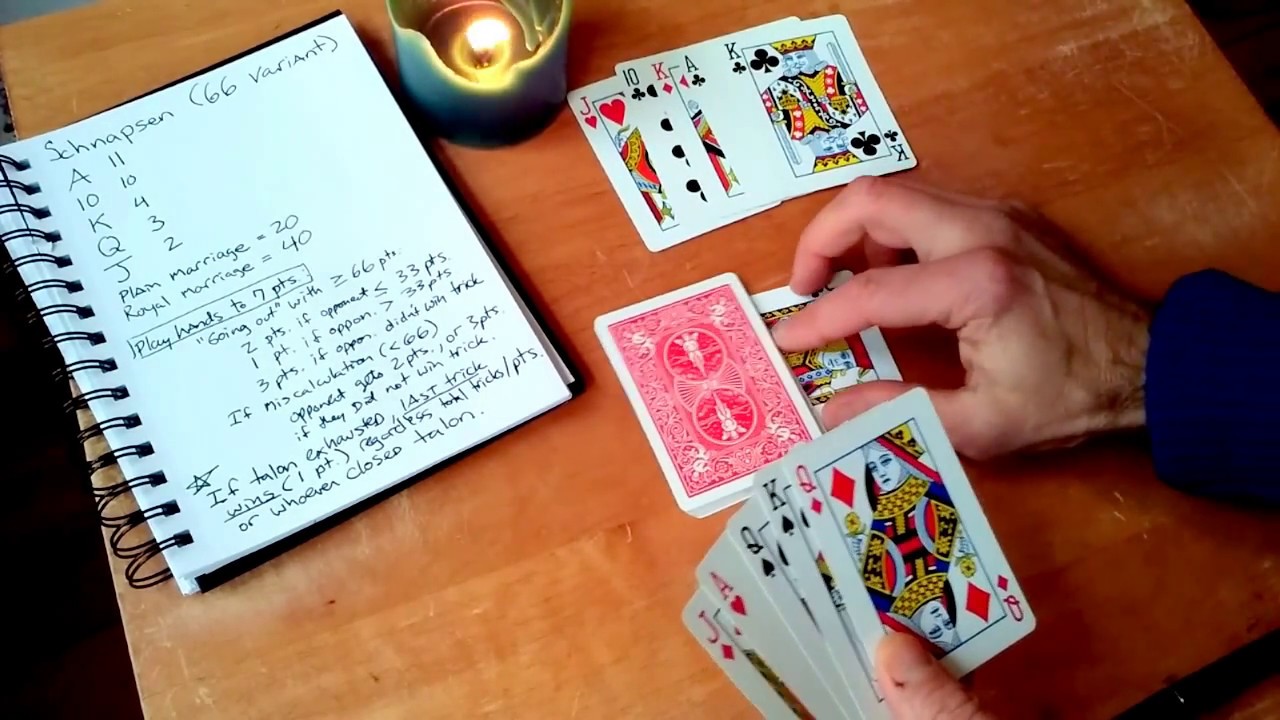 Schnapsen (66 Variant)
A 11
10 10
K 4
Q 3
J 2
Plain marriage = 20
Royal marriage = 40
Play hands to 7 pts:
"Going out" with ≥ 66 pts.
2 pts. if opponent ≤ 33 pts.
1 pt. if oppon. > 33 pts
3 pts. if oppon. didn't win trick
If miscalculation (<66)
opponent gets 2 pts., or 3 pts.
if they did not win trick.
☆ If talon exhausted, LAST trick
wins (1 pt.) regardless total tricks/pts.
or whoever closed talon.
J
10
K
A
K
K
J
A
Q
K
Q
Q